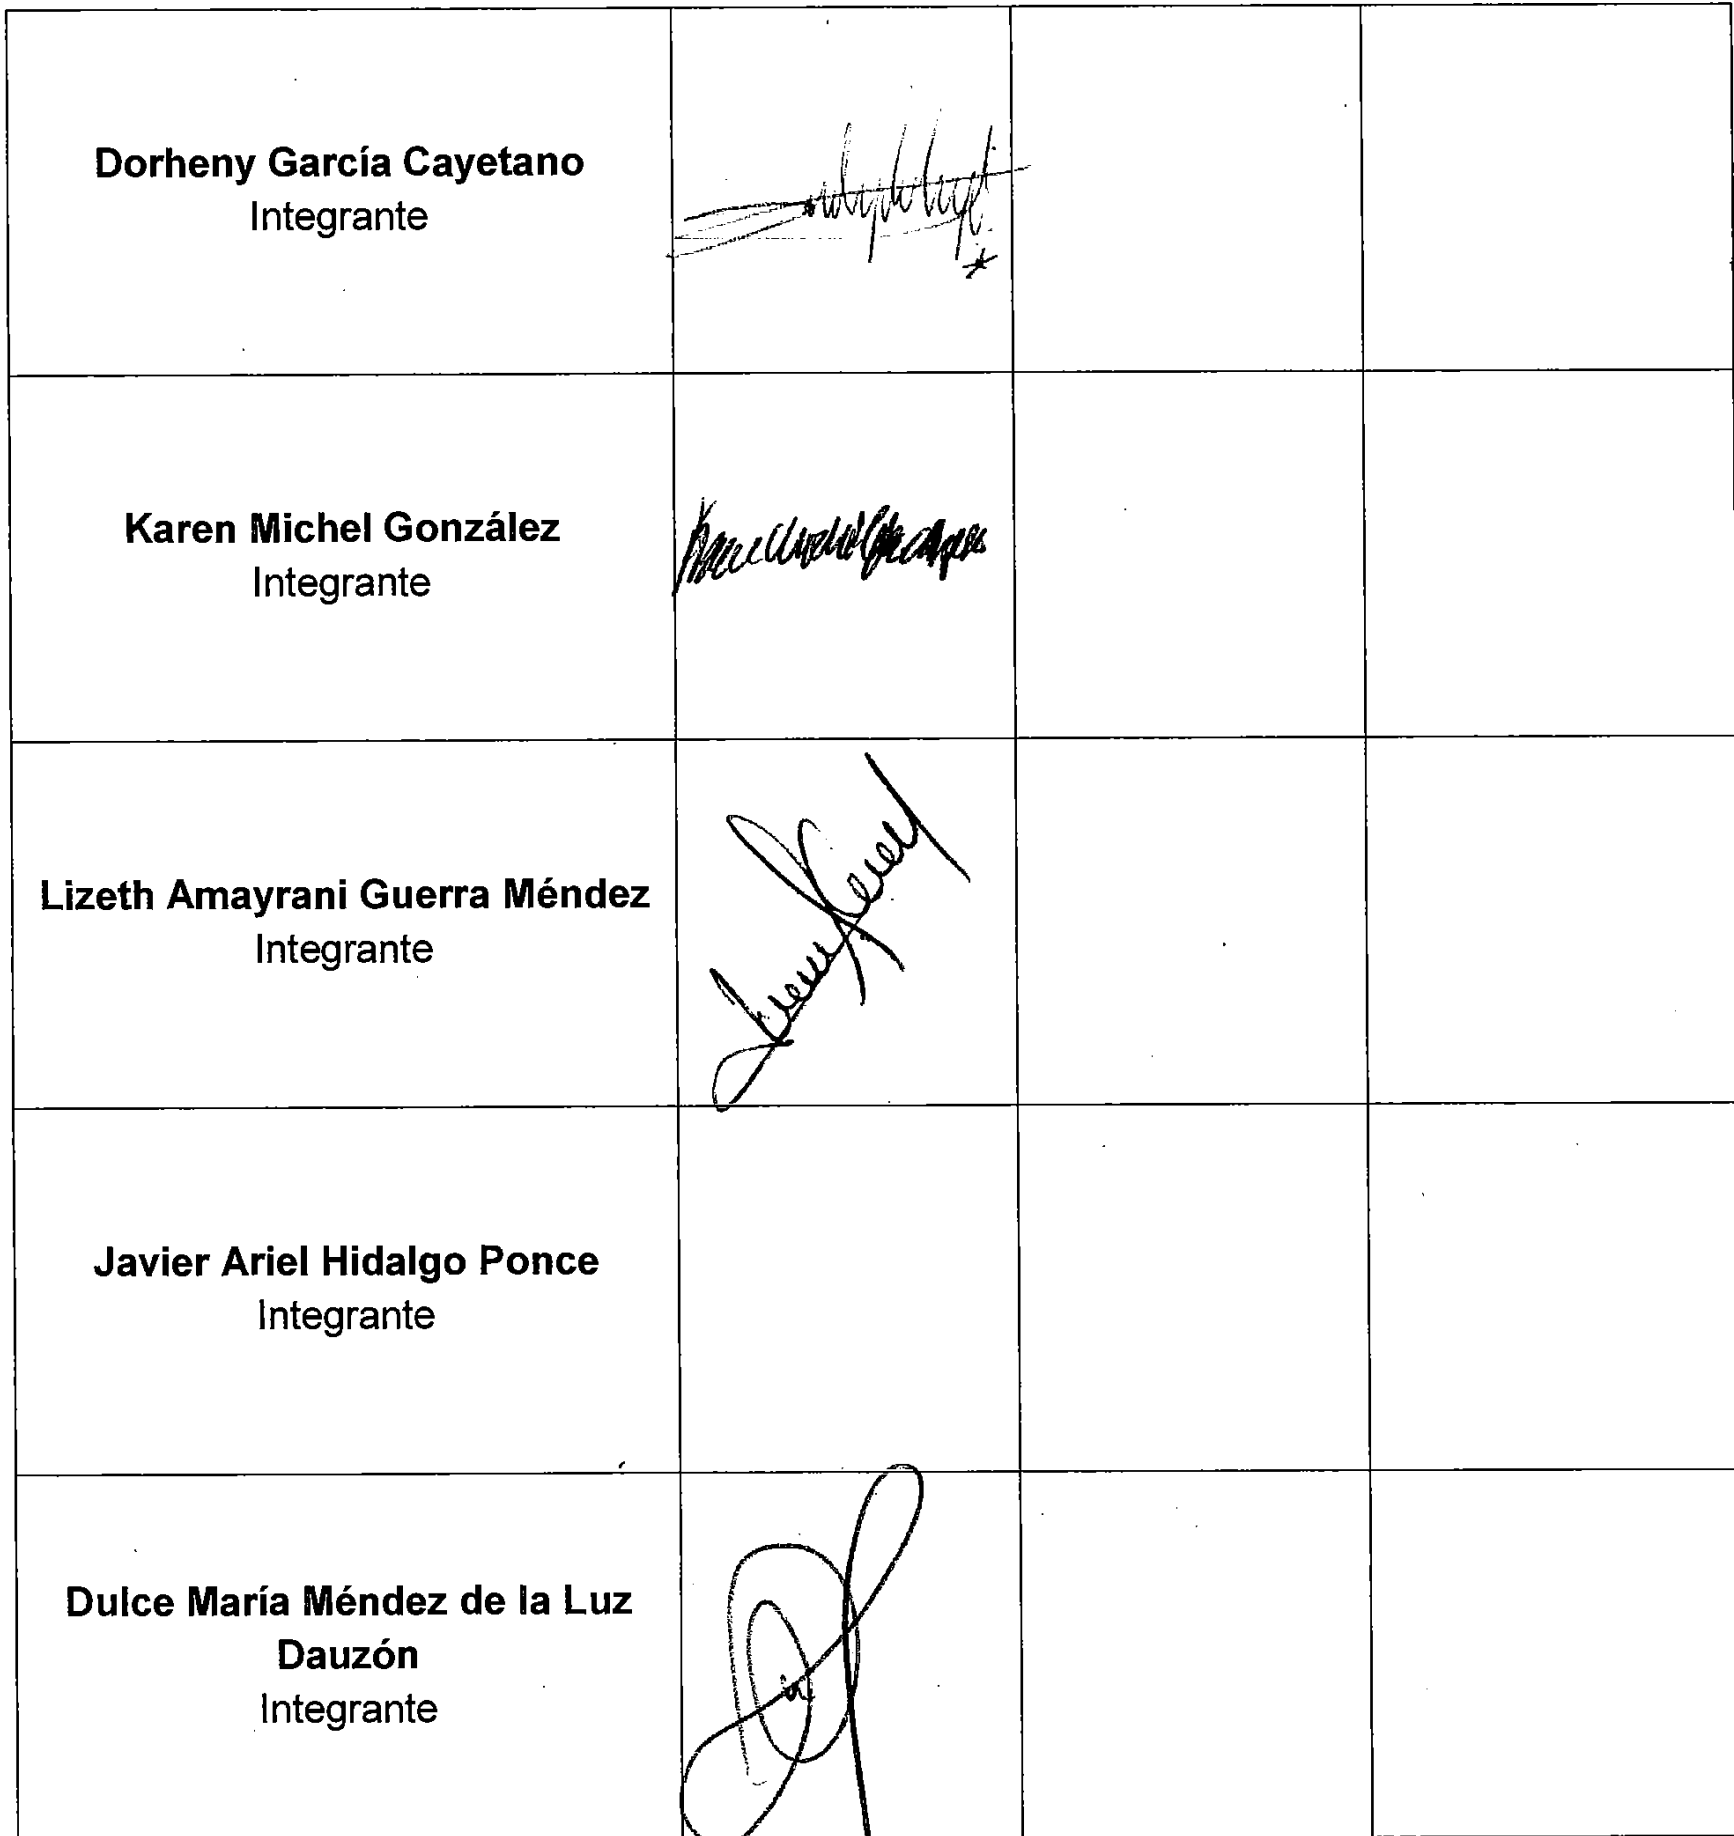 Dorheny García Cayetano
Integrante
Karen Michel González
Integrante
Lizeth Amayrani Guerra Méndez
Integrante
Javier Ariel Hidalgo Ponce
Integrante
Dulce María Méndez de la Luz
Dauzón
Integrante